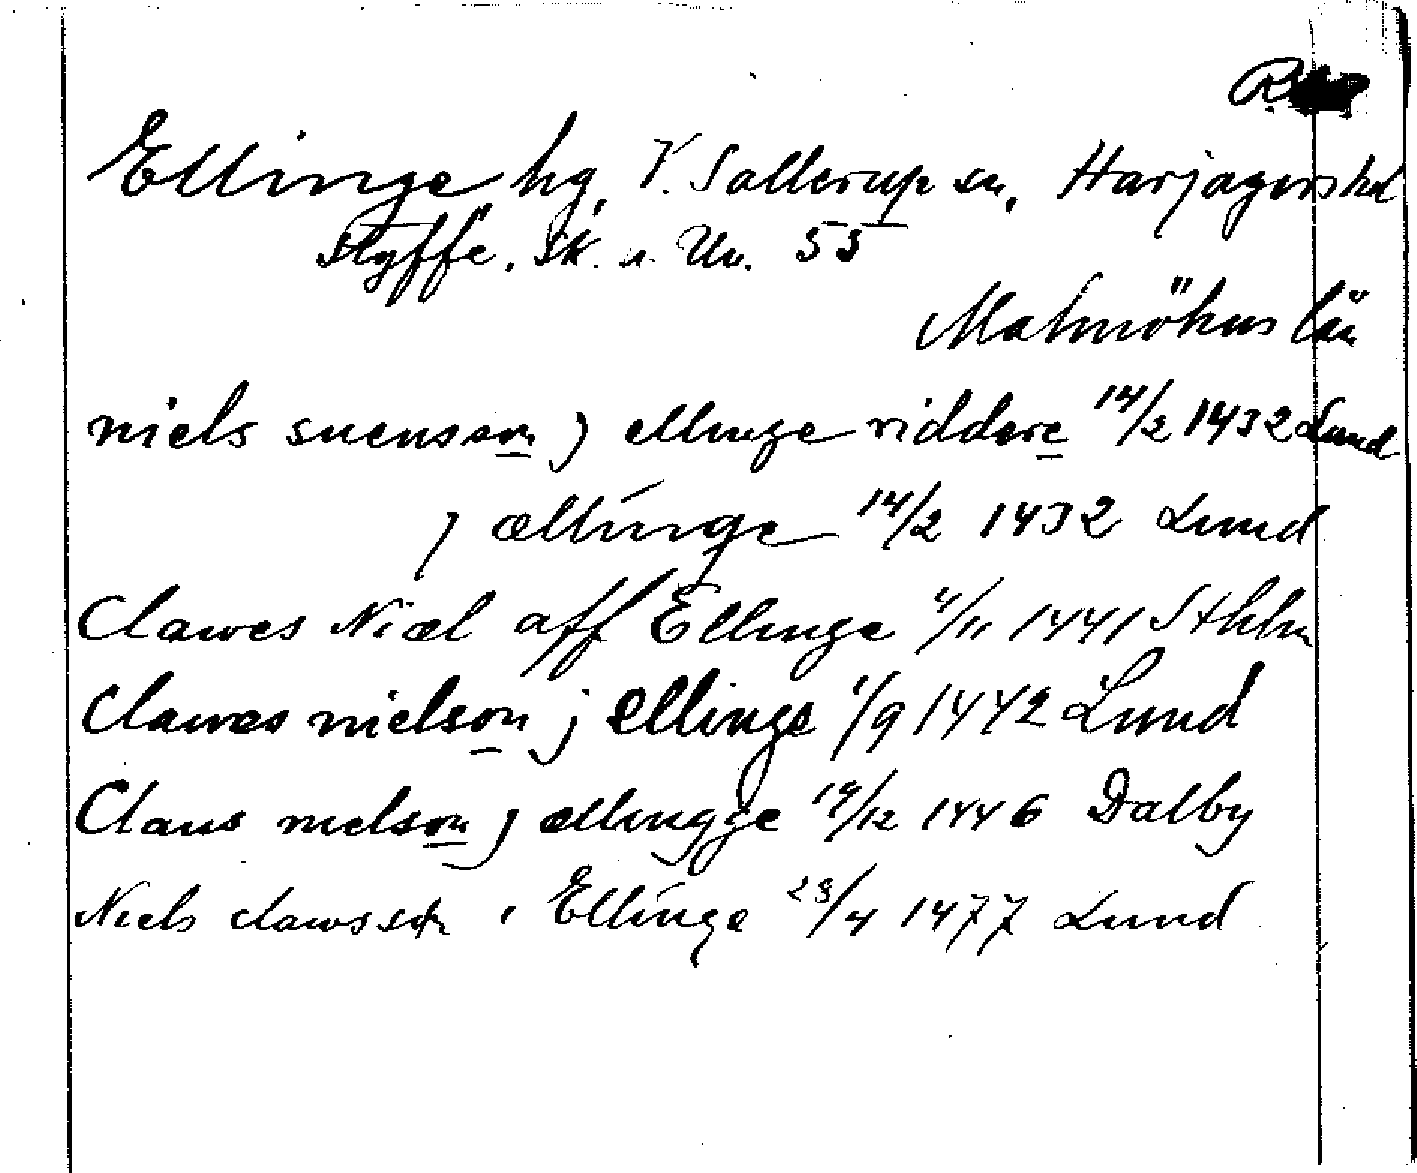 Ellinge hg, V. Sallerup sn, Harjagers hd
Styffe, Sk. u. Un. 55
Malmöhus län
niels suensson j ellinge riddere 14/2 1432 Lund
j ællinge 14/2 1432 Lund
Clawes Niæl aff Ellinge 4/11 1441 Sthlm
Clawes nielson j ellinge 1/9 1442 Lund
Claus nielson j ællingge 19/12 1446 Dalby
Niels clawsson i Ellinge 23/4 1477 Lund